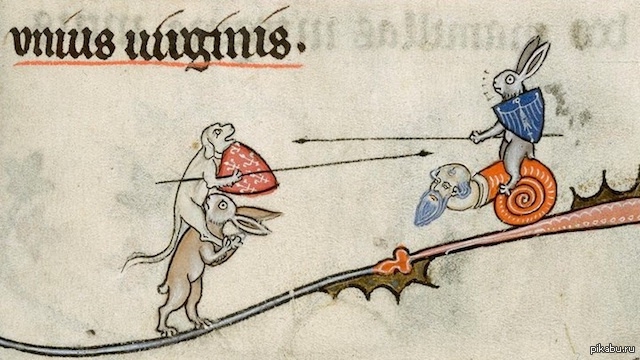 vnius uirginis.
pikabu.ru